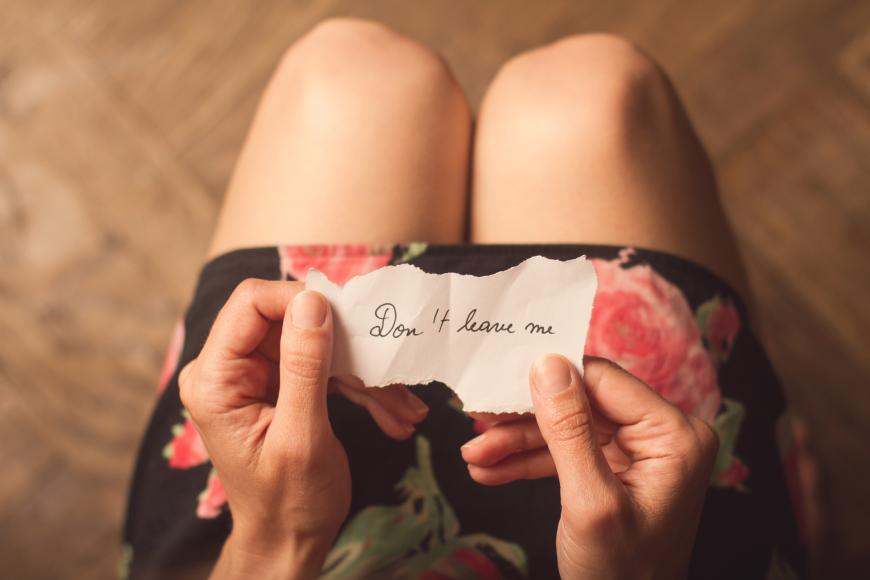 Don't leave me